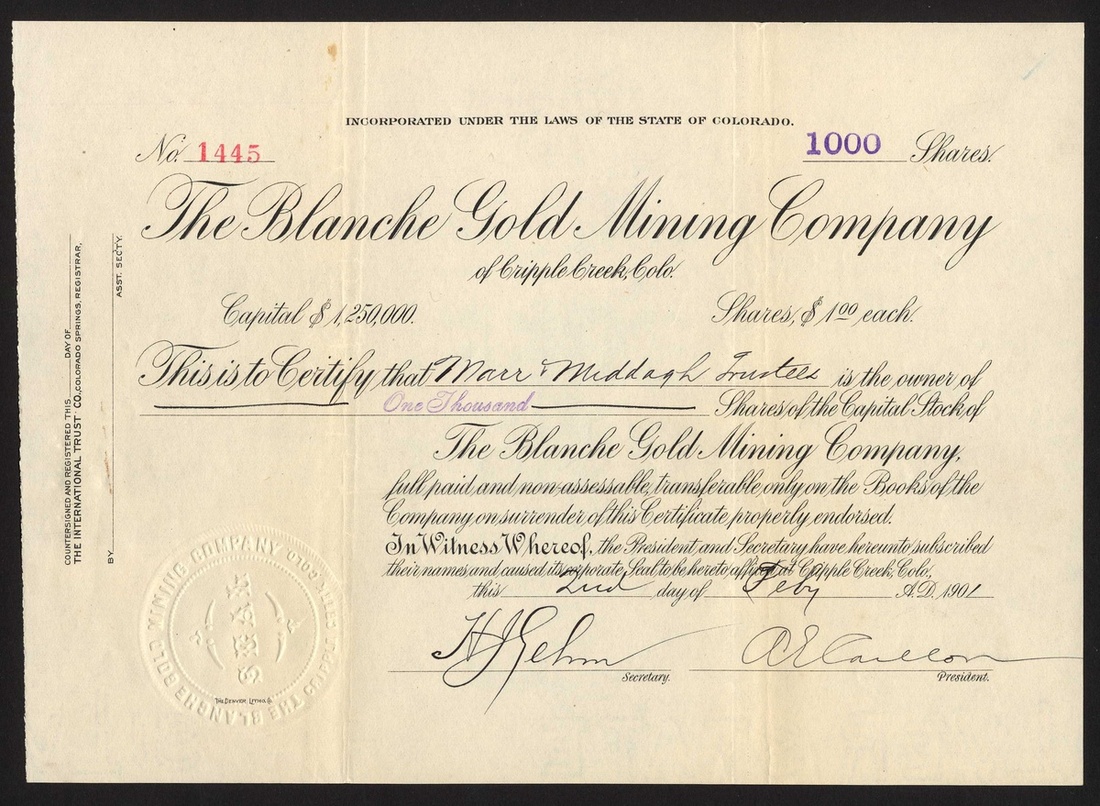 INCORPORATED UNDER THE LAWS OF THE STATE OF COLORADO.
No. 1445
1000 Shares.
The Blanche Gold Mining Company
of Cripple Creek, Colo.
Capital $1,250,000.
Shares, $1.00 each.
This is to Certify that Marr & Middagh Trustees is the owner of
One Thousand Shares of the Capital Stock of
The Blanche Gold Mining Company,
full paid and non-assessable, transferable only on the Books of the
Company on surrender of this Certificate properly endorsed.
In Witness Whereof, the President and Secretary have hereunto subscribed
their names and caused its corporate Seal to be hereto affixed at Cripple Creek, Colo.,
this 2nd day of Feby A.D. 1901
Secretary.
President.
COUNTERSIGNED AND REGISTERED THIS DAY OF
THE INTERNATIONAL TRUST CO., COLORADO SPRINGS, REGISTRAR,
BY ASST. SECTY.
THE BLANCHE GOLD MINING COMPANY
CRIPPLE CREEK COLO.
SEAL
THE DENVER LITHO. CO.